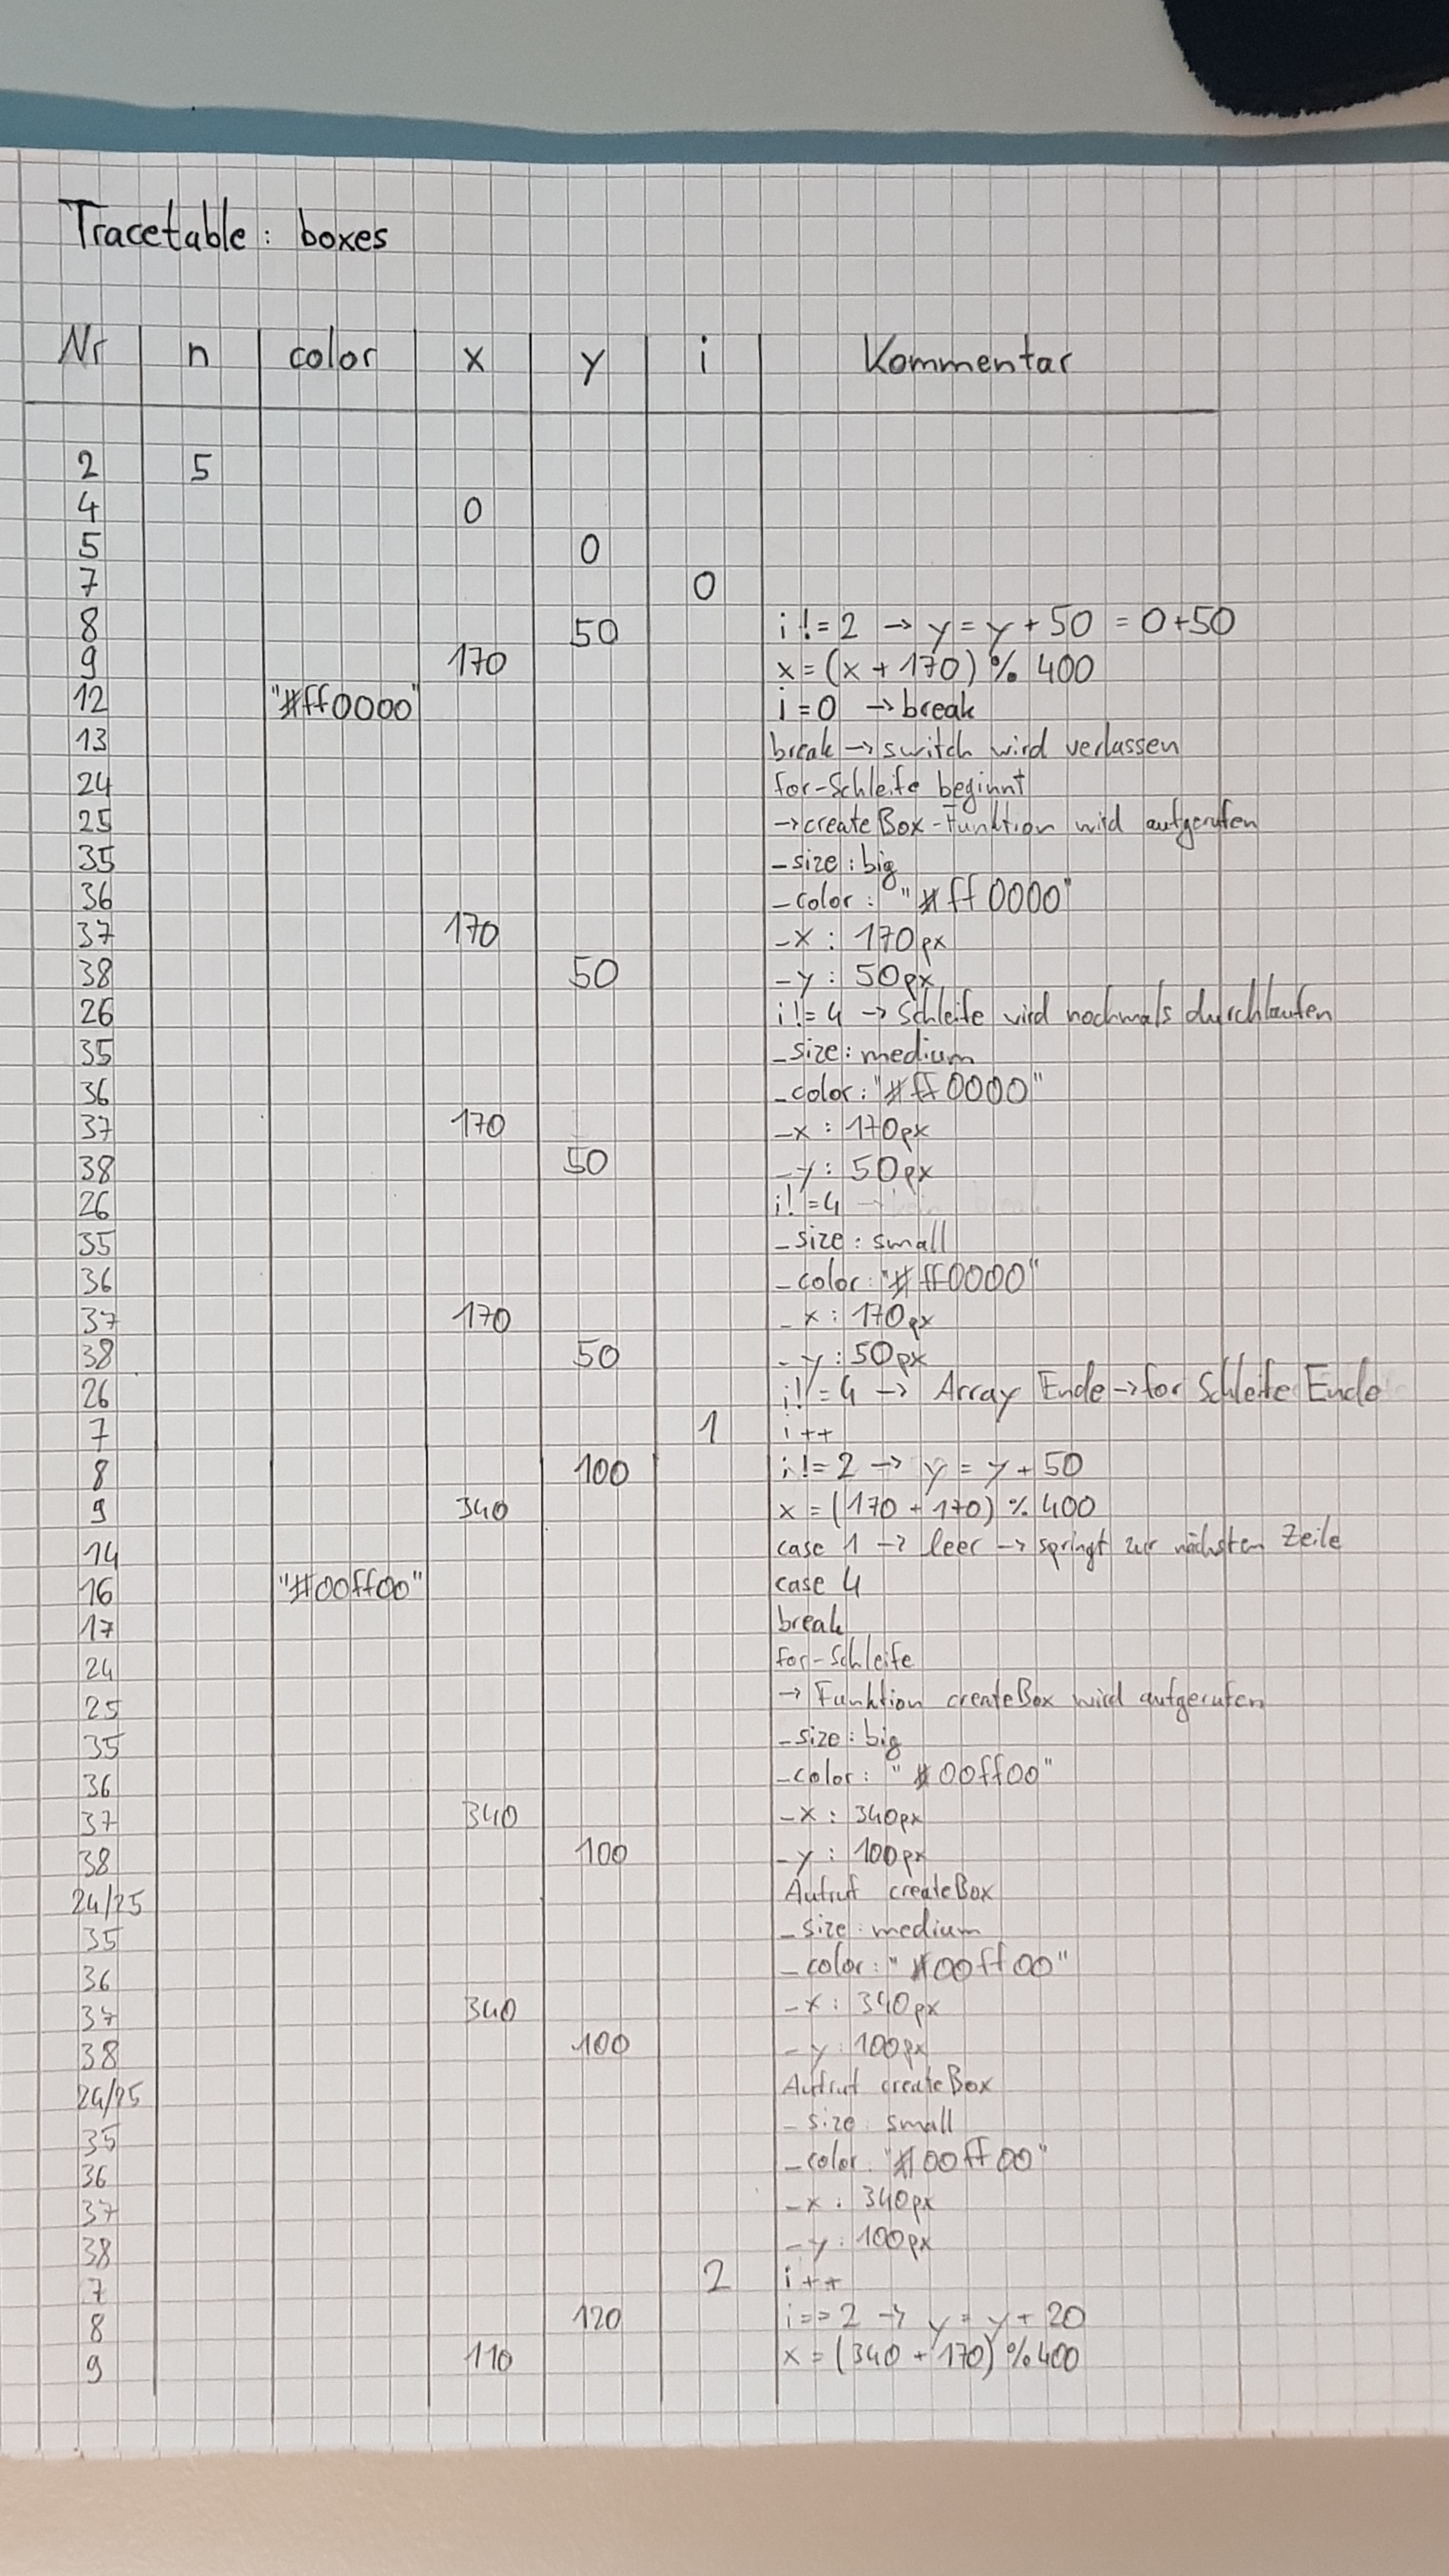 Tracetable: boxes
Nr n color x y i Kommentar
2 5
4 0
5 0
7 0
8 50 i != 2 → y = y + 50 = 0+50
9 170 x = (x + 170) % 400
12 "#ff0000" i = 0 → break
13 break → switch wird verlassen
24 for-Schleife beginnt
25 → createBox-Funktion wird aufgerufen
35 - size: big
36 - color: "#ff0000"
37 170 - x: 170px
38 50 - y: 50px
26 i != 4 → Schleife wird nochmals durchlaufen
35 - size: medium
36 - color: "#ff0000"
37 170 - x: 170px
38 50 - y: 50px
26 i != 4
35 - size: small
36 - color: "#ff0000"
37 170 - x: 170px
38 50 - y: 50px
26 i != 4 → Array Ende → for Schleife Ende
7 1 i++
8 100 i != 2 → y = y + 50
9 340 x = (170 + 170) % 400
14 case 1 → leer → springt zur nächsten Zeile
16 "#00ff00" case 4
17 break
24 for-Schleife
25 → Funktion createBox wird aufgerufen
35 - size: big
36 - color: "#00ff00"
37 340 - x: 340px
38 100 - y: 100px
24/25 Aufruf createBox
35 - size: medium
36 - color: "#00ff00"
37 340 - x: 340px
38 100 - y: 100px
24/25 Aufruf createBox
35 - size: small
36 - color: "#00ff00"
37 - x: 340px
38 - y: 100px
7 2 i++
8 120 i == 2 → y = y + 20
9 110 x = (340 + 170) % 400